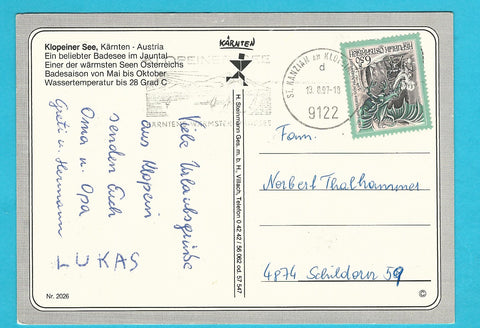 Klopeiner See, Kärnten - Austria
Ein beliebter Badesee im Jauntal
Einer der wärmsten Seen Österreichs
Badesaison von Mai bis Oktober
Wassertemperatur bis 28 Grad C
Viele Urlaubsgrüße
aus Klopein
senden Euch
Oma u. Opa
Greti u. Hermann
LUKAS
Nr. 2026
KÄRNTEN
H. Steinmann Ges. m. b. H., Villach, Telefon 0 42 42 / 56 062 od. 57 547
KLOPEINER SEE
KÄRNTENS WÄRMSTER BADESEE
ST. KANZIAN AM KLOP
d
13. 8. 97-1
9122
REPUBLIK ÖSTERREICH
6.50
Fam.
Norbert Thalhammer
4874 Schildorn 59
©